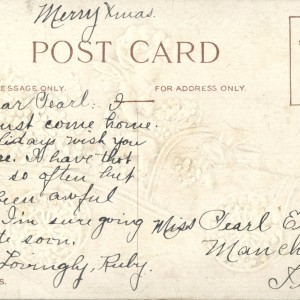 Merry Xmas.
POST CARD
ESSAGE ONLY.
FOR ADDRESS ONLY.
ar Pearl: I
ust come home.
lidays wish you
re. I have thot
so often but
een awful
I'm sure going
te soon.
Lovingly, Ruby.
Miss Pearl E
Manch